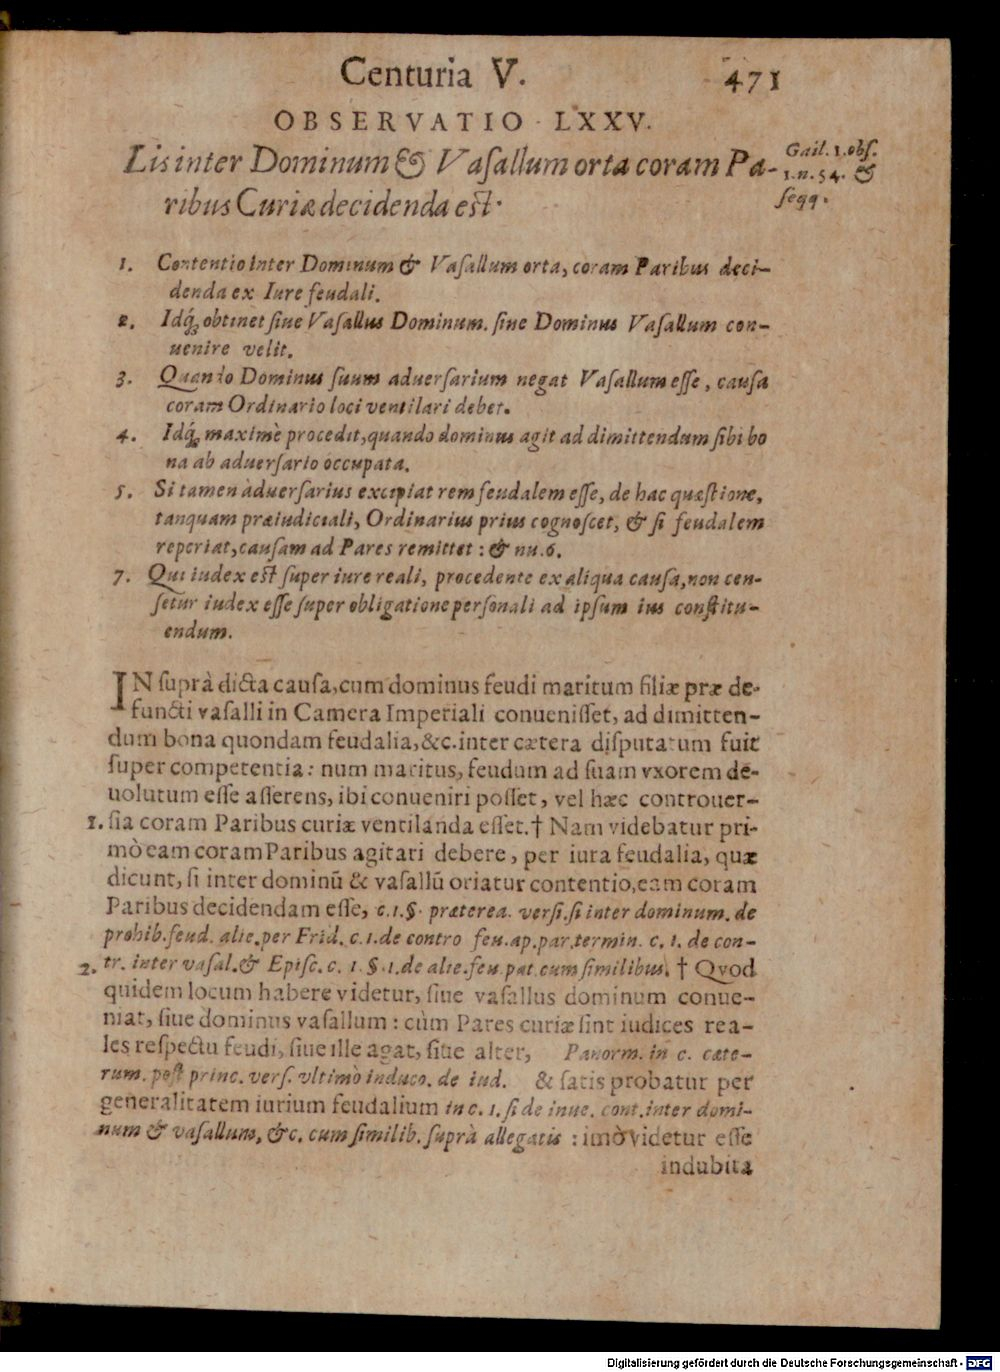 Centuria V. 471
OBSERVATIO LXXV.
Lis inter Dominum & Vaſallum orta coram Pa-
ribus Curiæ decidenda eſt.
Gail. 1. obſ.
1. n. 54. &
ſeqq.
1. Contentio inter Dominum & Vaſallum orta, coram Paribus deci-
denda ex Iure feudali.
2. Idq́; obtinet ſiue Vaſallus Dominum. ſiue Dominus Vaſallum con-
uenire velit.
3. Quando Dominus ſuum aduerſarium negat Vaſallum eſſe, cauſa
coram Ordinario loci ventilari debet.
4. Idq́; maximè procedit, quando dominus agit ad dimittendum ſibi bo
na ab aduerſario occupata.
5. Si tamen aduerſarius excipiat rem feudalem eſſe, de hac quæſtione,
tanquam præiudiciali, Ordinarius prius cognoſcet, & ſi feudalem
reperiat, cauſam ad Pares remittet : & nu. 6.
7. Qui iudex eſt ſuper iure reali, procedente ex aliqua cauſa, non cen-
ſetur iudex eſſe ſuper obligatione perſonali ad ipſum ius conſtitu-
endum.
IN ſuprà dicta cauſa, cum dominus feudi maritum filiæ præ de-
functi vaſalli in Camera Imperiali conueniſſet, ad dimitten-
dum bona quondam feudalia, &c. inter cætera diſputatum fuit
ſuper competentia: num maritus, feudum ad ſuam vxorem de-
uolutum eſſe aſſerens, ibi conueniri poſſet, vel hæc controuer-
1. ſia coram Paribus curiæ ventilanda eſſet. † Nam videbatur pri-
mò eam coram Paribus agitari debere, per iura feudalia, quæ
dicunt, ſi inter dominū & vaſallū oriatur contentio, eam coram
Paribus decidendam eſſe, c. 1. §. præterea. verſi. ſi inter dominum. de
prohib. feud. alie. per Frid. c. 1. de contro feu. ap. par. termin. c. 1. de con-
2. tr. inter vaſal. & Epiſc. c. 1 §. 1. de alie. feu. pat. cum ſimilibus. † Qvod
quidem locum habere videtur, ſiue vaſallus dominum conue-
niat, ſiue dominus vaſallum : cùm Pares curiæ ſint iudices rea-
les reſpectu feudi, ſiue ille agat, ſiue alter, Panorm. in c. cæte-
rum. poſt princ. verſ. vltimò induco. de iud. & ſatis probatur per
generalitatem iurium feudalium in c. 1. ſi de inue. cont. inter domi-
num & vaſallum, &c. cum ſimilib. ſuprà allegatis : imò videtur eſſe
indubita
Digitalisierung gefördert durch die Deutsche Forschungsgemeinschaft - DFG